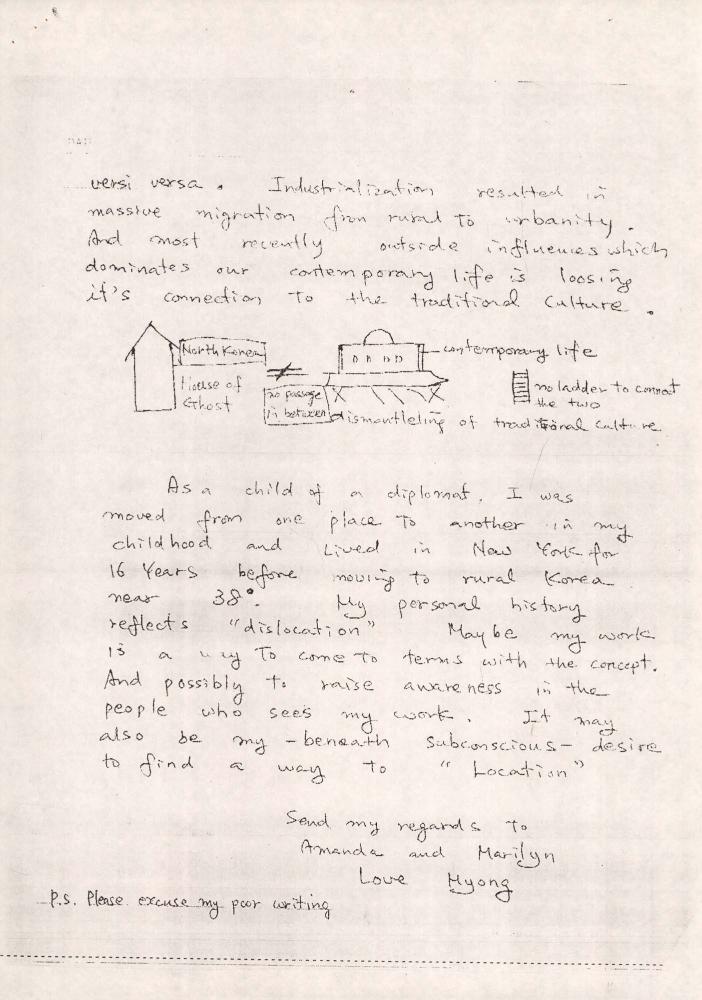 versi versa. Industrialization resulted in
massive migration from rural to urbanity.
And most recently outside influences which
dominates our contemporary life is loosing
it's connection to the traditional culture.
North Korea
House of
Ghost
≠
no passage
in between
contemporary life
dismantleling of traditional culture
no ladder to connect
the two
As a child of a diplomat, I was
moved from one place to another in my
childhood and Lived in New York for
16 Years before moving to rural Korea
near 38°. My personal history
reflects "dislocation" Maybe my work
is a way to come to terms with the concept.
And possibly to raise awareness in the
people who sees my work. It may
also be my - beneath subconscious - desire
to find a way to "Location"
Send my regards to
Amanda and Marilyn
Love Myong
P.S. Please excuse my poor writing